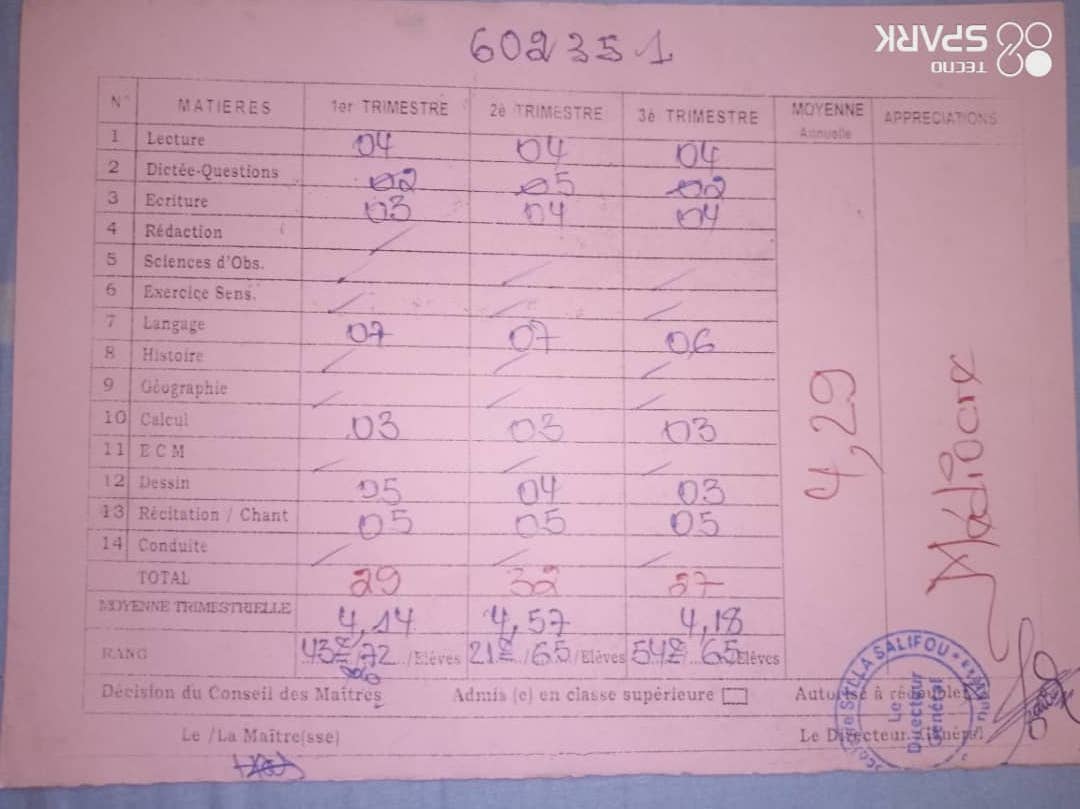 TECNO
SPARK
602351
N° MATIERES 1er TRIMESTRE 2è TRIMESTRE 3è TRIMESTRE MOYENNE Annuelle APPRECIATIONS
1 Lecture 04 04 04
2 Dictée-Questions 02 05 02
3 Ecriture 03 04 04
4 Rédaction
5 Sciences d'Obs.
6 Exercice Sens.
7 Langage 07 07 06
8 Histoire
9 Géographie
10 Calcul 03 03 03
11 E C M
12 Dessin 05 04 03
13 Récitation / Chant 05 05 05
14 Conduite
TOTAL 29 32 27
MOYENNE TRIMESTRIELLE 4,14 4,57 4,18
RANG 43è/72/Elèves 21è/65/Elèves 54è 65 Elèves
4,29
Médiocre
Décision du Conseil des Maîtres Admis (e) en classe supérieure Autorisé à redoubler
Le /La Maître(sse) Le Directeur Général
SYLLA SALIFOU
Le
Directeur
Général